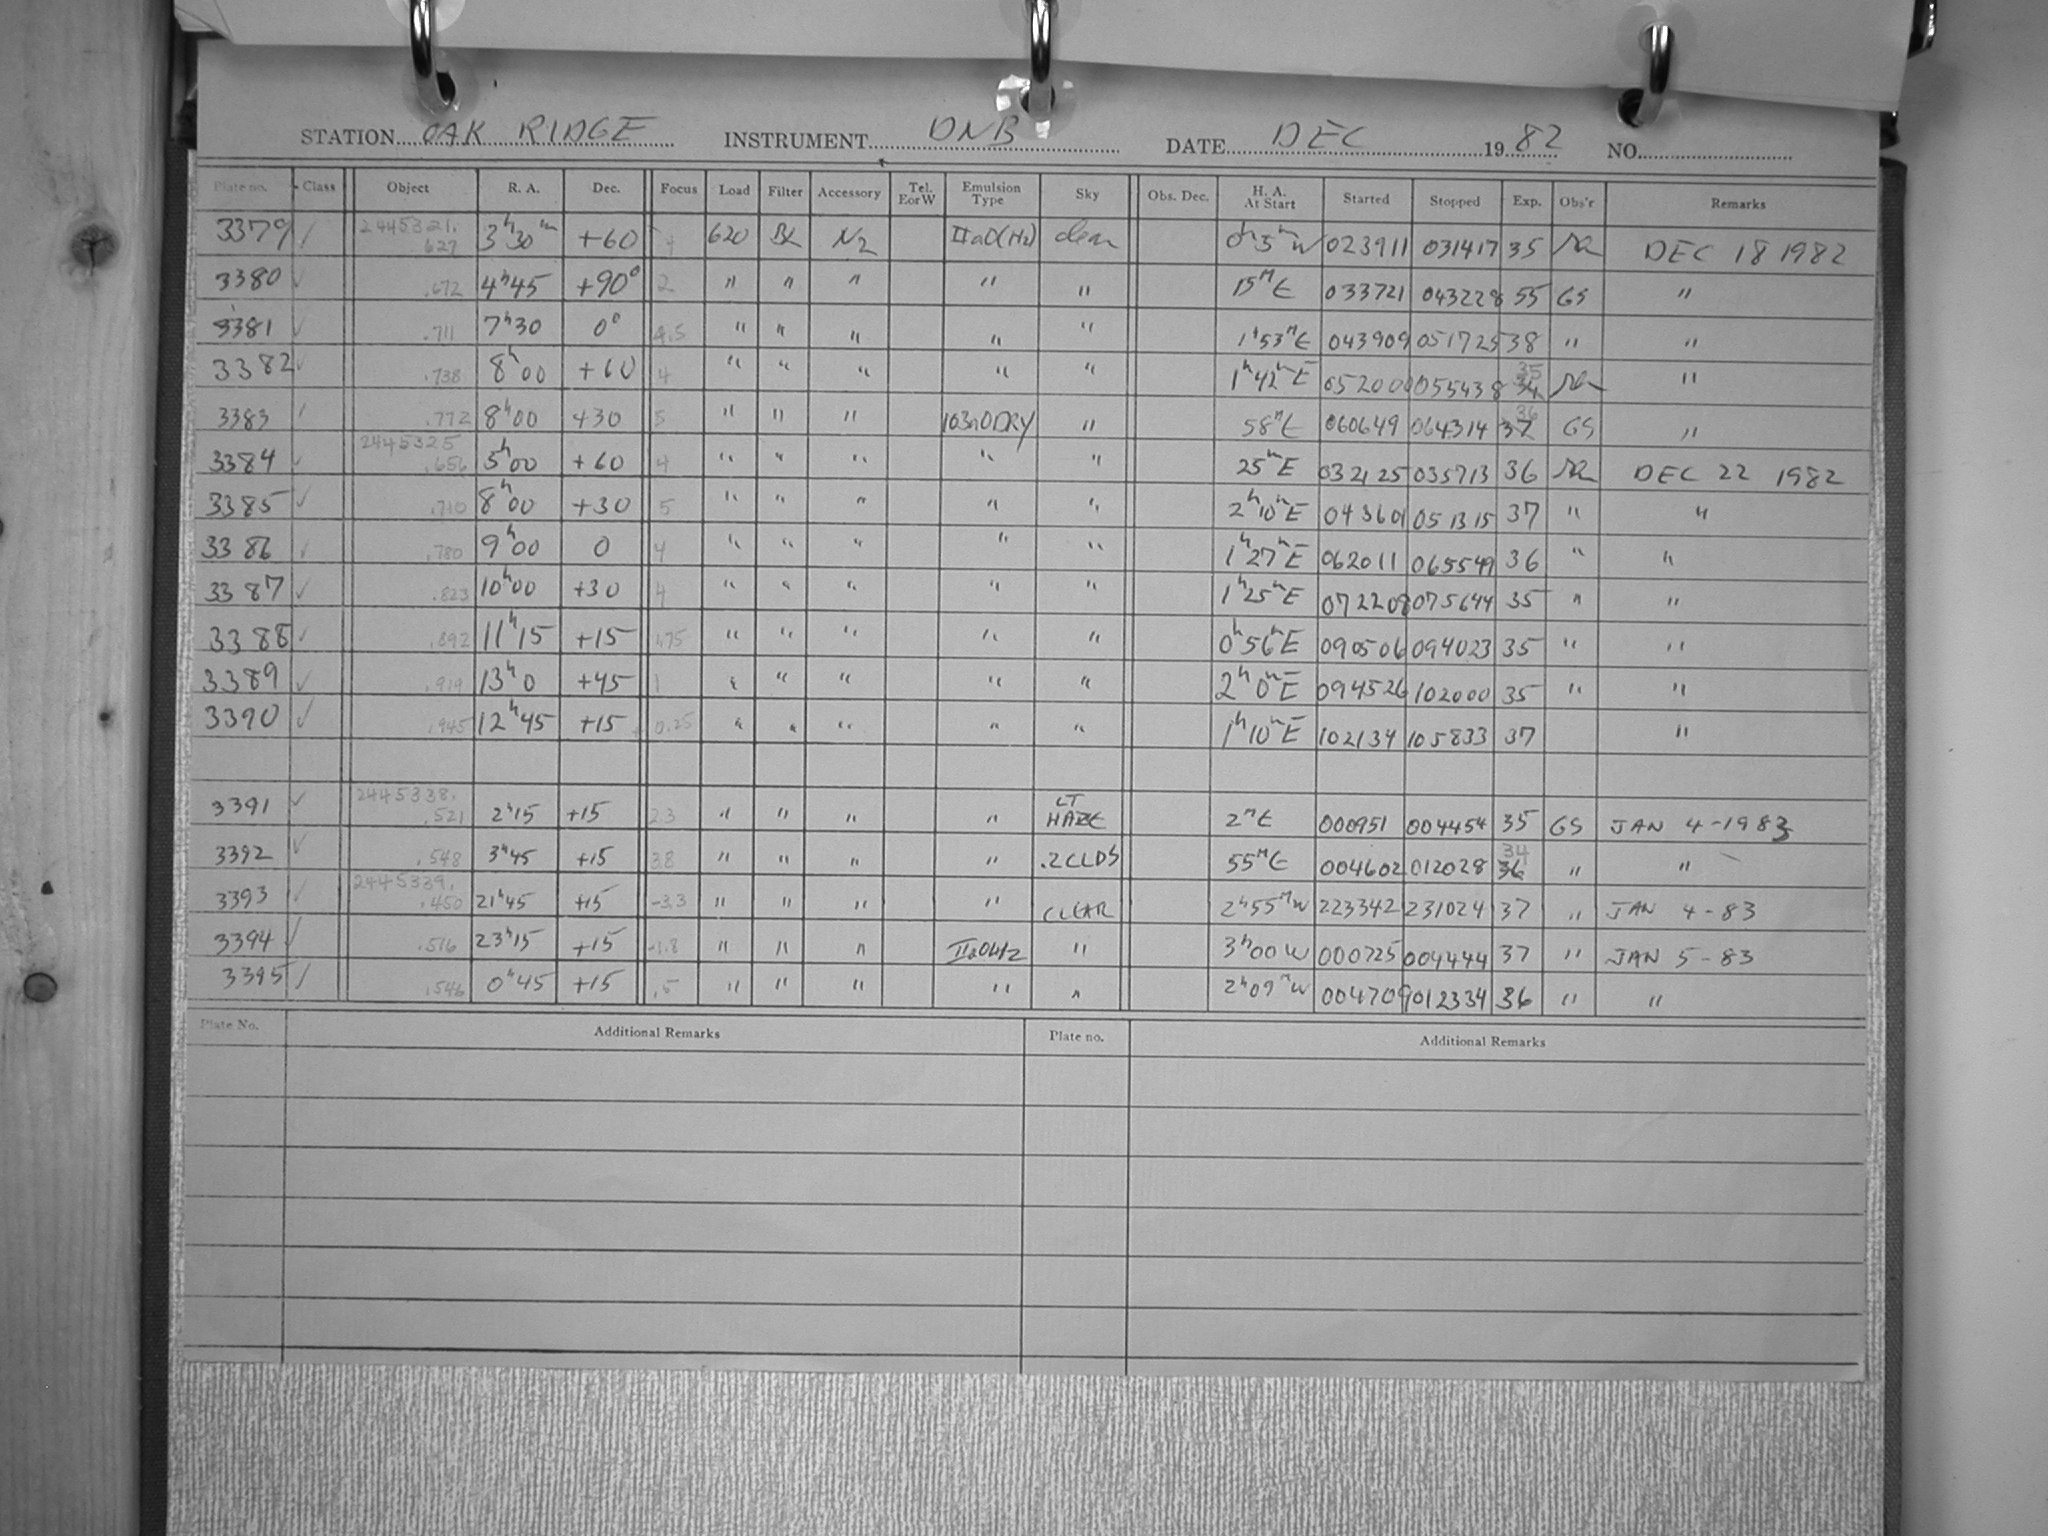 STATION OAK RIDGE INSTRUMENT DNB DATE DEC 1982 NO.
Plate no. Class Object R. A. Dec. Focus Load Filter Accessory Tel. E or W Emulsion Type Sky Obs. Dec. H. A. At Start Started Stopped Exp. Obs'r Remarks
3379 / 2445321.627 3h30m +60 4 620 BL N2 IIaO(H2) clear 0h5mW 023911 031417 35 DEC 18 1982
3380 ✓ .672 4h45 +90° 2 " " " " " 15mE 033721 043228 55 GS "
3381 ✓ .711 7h30 0° 4.5 " " " " " 1h53mE 043909 051725 38 " "
3382 ✓ .738 8h00 +60 4 " " " " " 1h42mE 052000 055438 34 35 "
3383 / .772 8h00 +30 5 " " " 103aO DRY " 58mE 060649 064314 37 36 GS "
3384 ✓ 2445325.656 5h00 +60 4 " " " " " 25mE 032125 035713 36 DEC 22 1982
3385 ✓ .710 8h00 +30 5 " " " " " 2h10mE 043601 051315 37 " "
3386 ✓ .780 9h00 0 4 " " " " " 1h27mE 062011 065549 36 " "
3387 ✓ .823 10h00 +30 4 " " " " " 1h25mE 072209 075644 35 " "
3388 ✓ .892 11h15 +15 1.75 " " " " " 0h56mE 090506 094023 35 " "
3389 ✓ .919 13h0 +45 1 " " " " " 2h0mE 094526 102000 35 " "
3390 ✓ .945 12h45 +15 +0.25 " " " " " 1h10mE 102134 105833 37 "
3391 ✓ 2445338.521 2h15 +15 2.3 " " " " LT HAZE 2mE 000951 004454 35 GS JAN 4-1983
3392 ✓ .548 3h45 +15 3.8 " " " " .2 CLDS 55mE 004602 012028 36 34 " "
3393 ✓ 2445339.450 21h45 +15 -3.3 " " " " CLEAR 2h55mW 223342 231024 37 " JAN 4-83
3394 ✓ .516 23h15 +15 -1.8 " " " IIaOH2 " 3h00 W 000725 004444 37 " JAN 5-83
3395 / .546 0h45 +15 .5 " " " " " 2h09mW 004709 012334 36 " "
Plate No. Additional Remarks Plate no. Additional Remarks